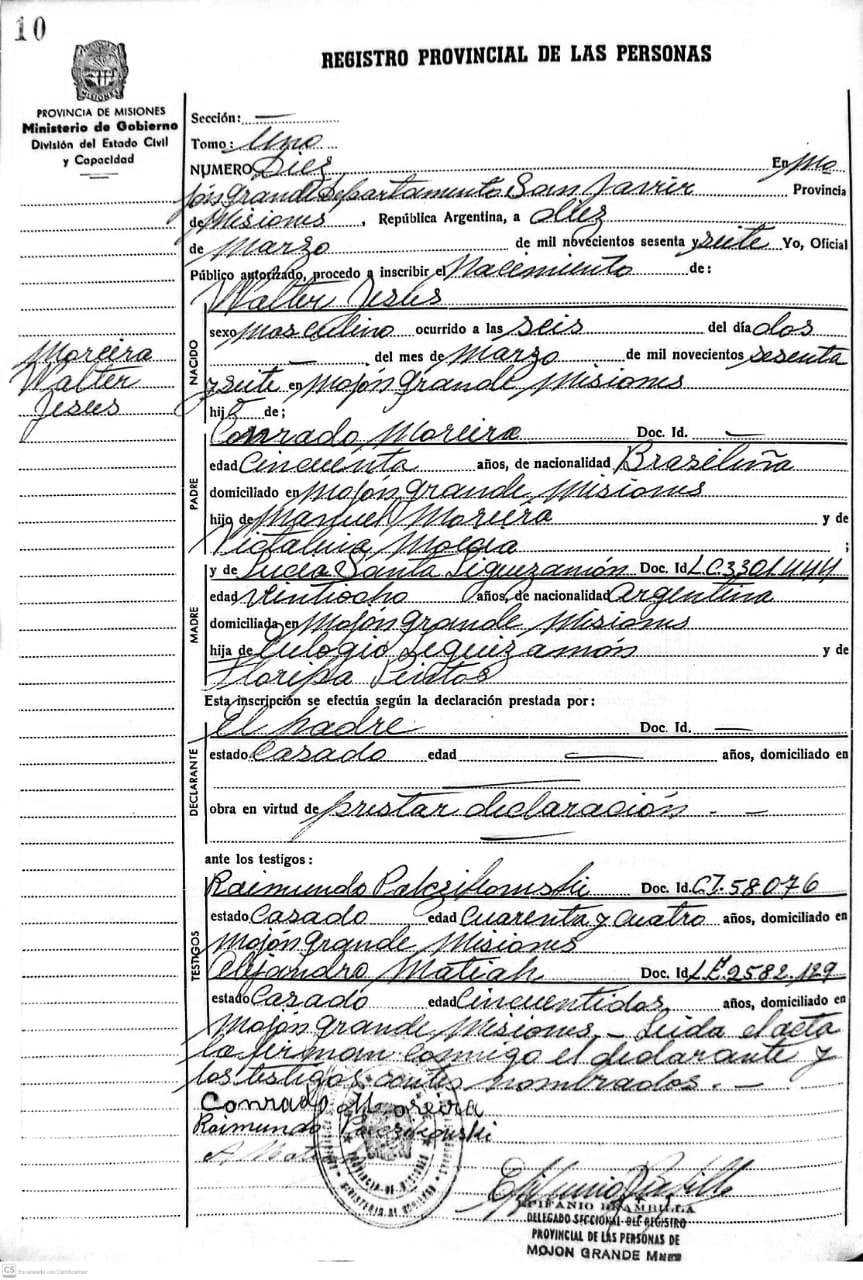 10
REGISTRO PROVINCIAL DE LAS PERSONAS
PROVINCIA DE MISIONES
Ministerio de Gobierno
División del Estado Civil
y Capacidad
Moreira
Walter
Jesus
Sección: —
Tomo: Uno
NUMERO Diez En Mo
jón Grande Departamento San Javier Provincia
de Misiones, República Argentina, a diez
de Marzo de mil novecientos sesenta y siete Yo, Oficial
Público autorizado, procedo a inscribir el Nacimiento de:
NACIDO
Walter Jesus
sexo masculino ocurrido a las seis del día dos
— del mes de Marzo de mil novecientos sesenta
y siete en Mojón Grande Misiones
hijo de;
PADRE
Conrado Moreira Doc. Id. —
edad Cincuenta años, de nacionalidad Brasileña
domiciliado en Mojón Grande Misiones
hijo de Manuel Moreira y de
;
MADRE
y de Lucia Santa Leguizamón Doc. Id L.C. 3301.444
edad Veintiocho años, de nacionalidad Argentina
domiciliada en Mojón Grande Misiones
hija de Eulogio Leguizamón y de
Floripa Pintos
Esta inscripción se efectúa según la declaración prestada por:
DECLARANTE
El padre Doc. Id. —
estado Casado edad — años, domiciliado en
—
obra en virtud de prestar declaración. —
—
ante los testigos:
TESTIGOS
Raimundo Doc. Id. C.I. 58076
estado Casado edad Cuarenta y cuatro años, domiciliado en
Mojón Grande Misiones
Alejandro Matiak Doc. Id L.E. 2582.129
estado Casado edad Cincuentidos años, domiciliado en
Mojón Grande Misiones — Leida el acta
la firman conmigo el declarante y
los testigos antes nombrados. —
Conrado Moreira
Raimundo
PROVINCIA DE MISIONES
MINISTERIO DE GOBIERNO
EPIFANIO BRAMBILLA
DELEGADO SECCIONAL DEL REGISTRO
PROVINCIAL DE LAS PERSONAS DE
MOJON GRANDE Mnes
CS Escaneado con CamScanner